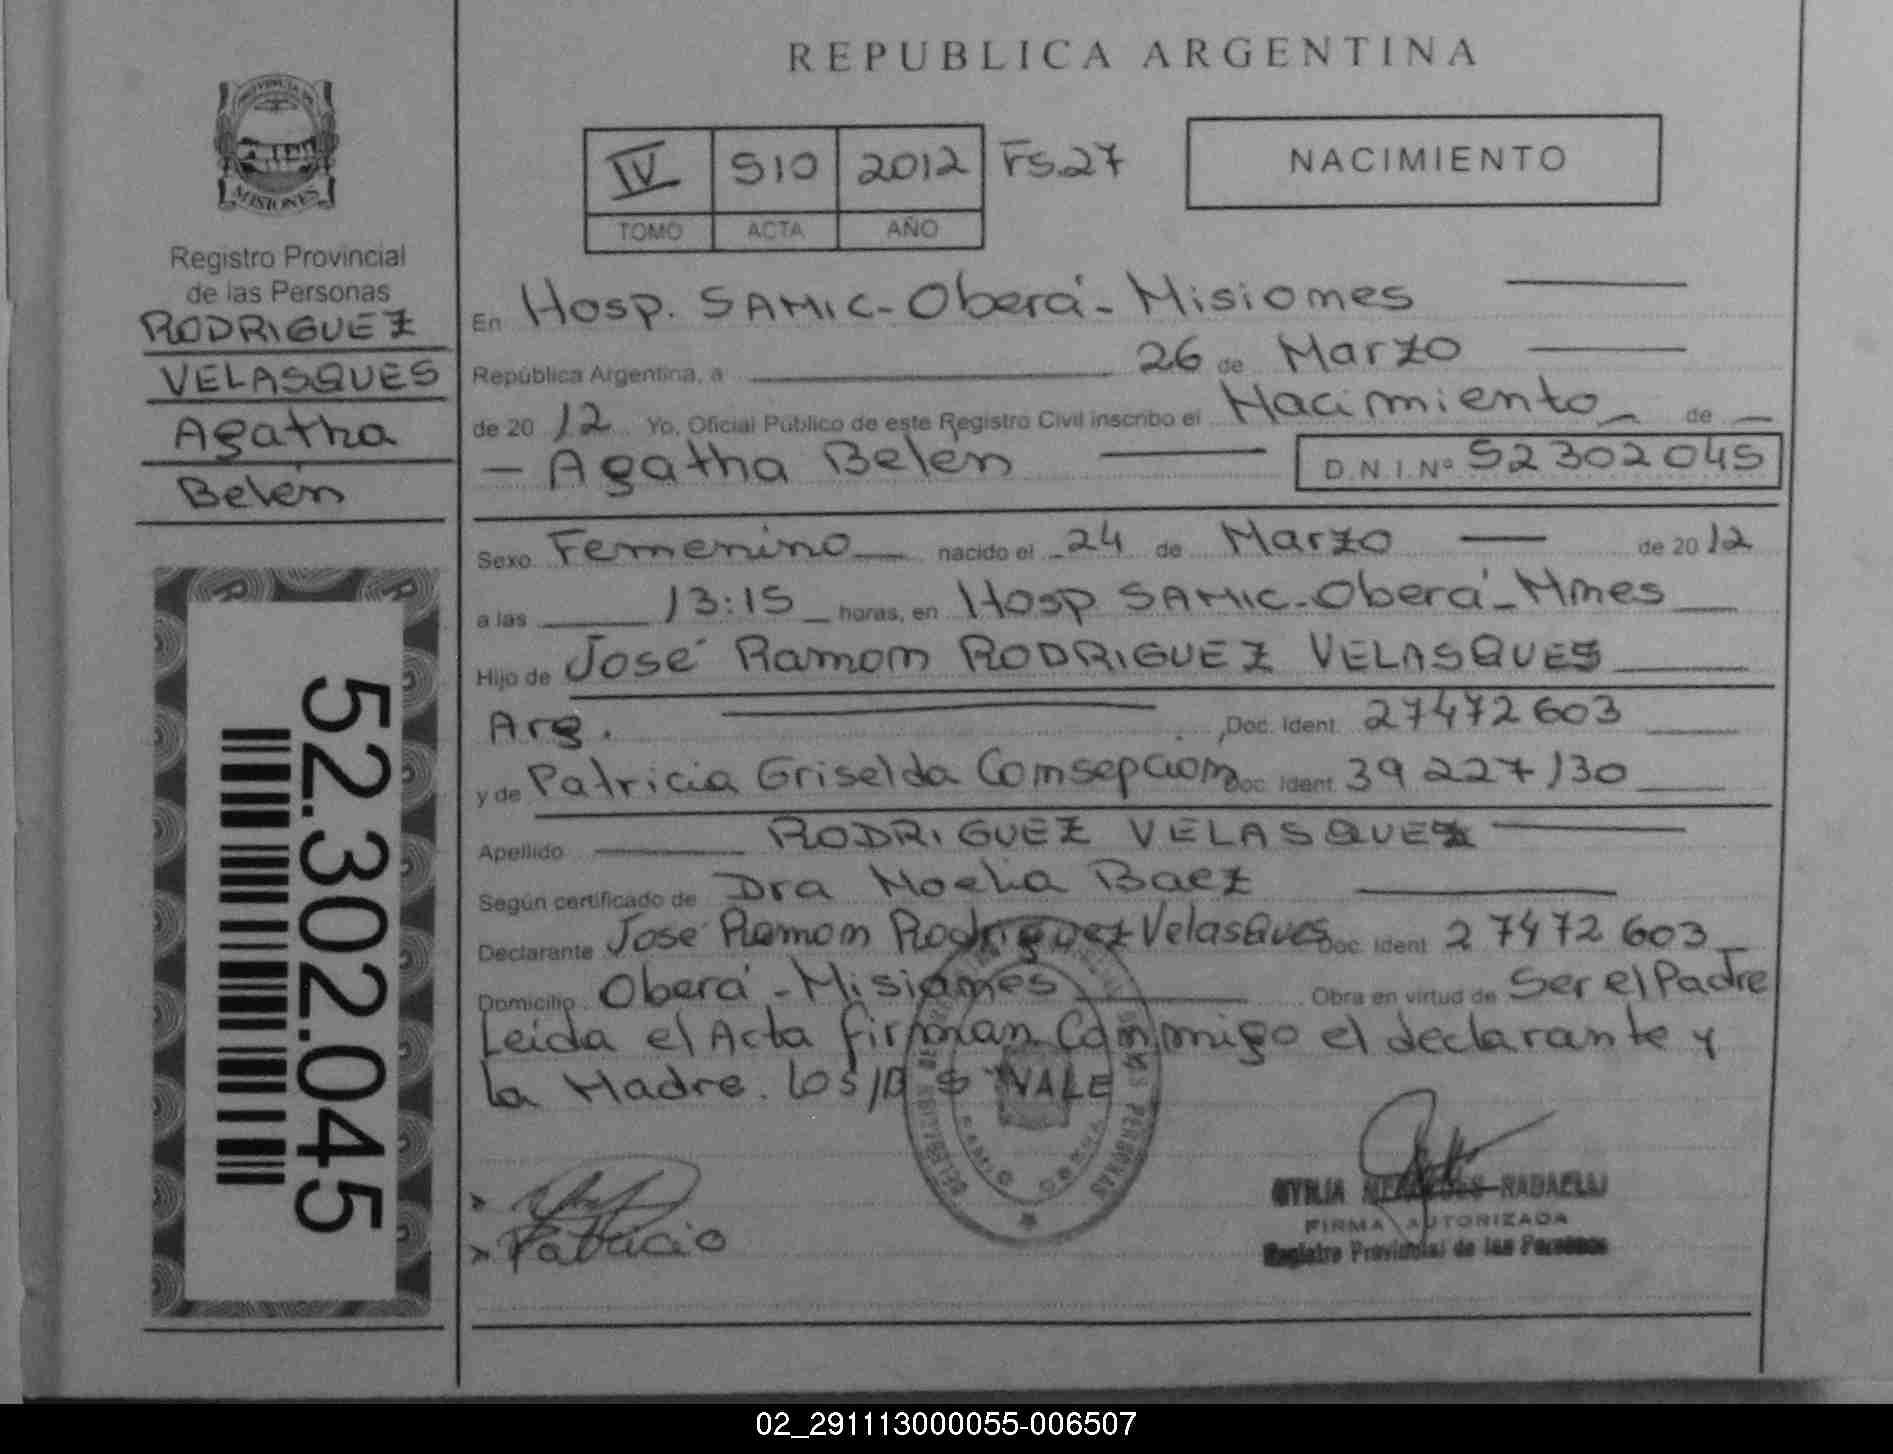 REPUBLICA ARGENTINA
PROVINCIA DE
MISIONES
Registro Provincial
de las Personas
RODRIGUEZ
VELASQUES
Agatha
Belén
52.302.045
IV 510 2012 Fs.27
TOMO ACTA AÑO
NACIMIENTO
En Hosp. SAMIC - Oberá - Misiones
República Argentina, a 26 de Marzo
de 2012 Yo, Oficial Público de este Registro Civil inscribo el Nacimiento de
Agatha Belén D.N.I.Nº 52302045
Sexo Femenino nacido el 24 de Marzo de 2012
a las 13:15 horas, en Hosp SAMIC - Oberá - Mnes
Hijo de José Ramon RODRIGUEZ VELASQUES
Arg. , Doc. Ident. 27472603
y de Patricia Griselda Comsepcion Doc. Ident. 39227130
Apellido RODRIGUEZ VELASQUES
Según certificado de Dra Noelia Baez
Declarante José Ramon Rodriguez Velasques Doc. Ident. 27472603
Domicilio Oberá - Misiones Obra en virtud de Ser el Padre
Leida el Acta firman Conmigo el declarante y
la Madre. VALE
Patricia
FIRMA AUTORIZADA
Registro Provincial de las Personas
02_291113000055-006507